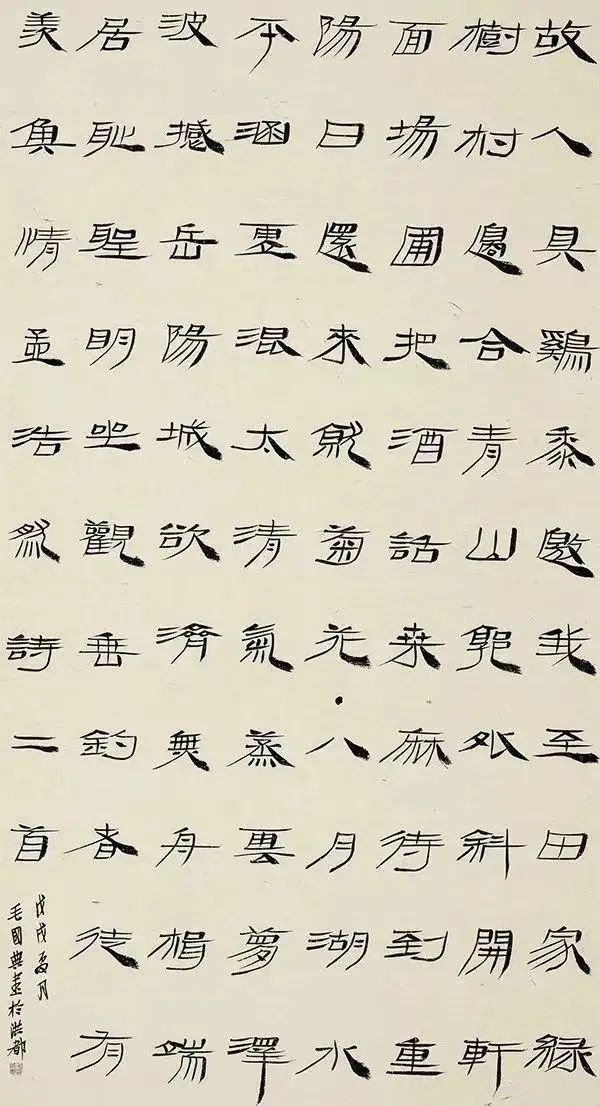 故人具鷄黍邀我至田家緑
樹村邊合青山郭外斜開軒
面場圃把酒話桑麻待到重
陽日還來就菊花•八月湖水
平涵虚混太清氣蒸雲夢澤
波撼岳陽城欲濟無舟楫端
居恥聖明坐觀垂釣者徒有
羡魚情孟浩然詩二首
戊戌夏月
毛國典書於洪都